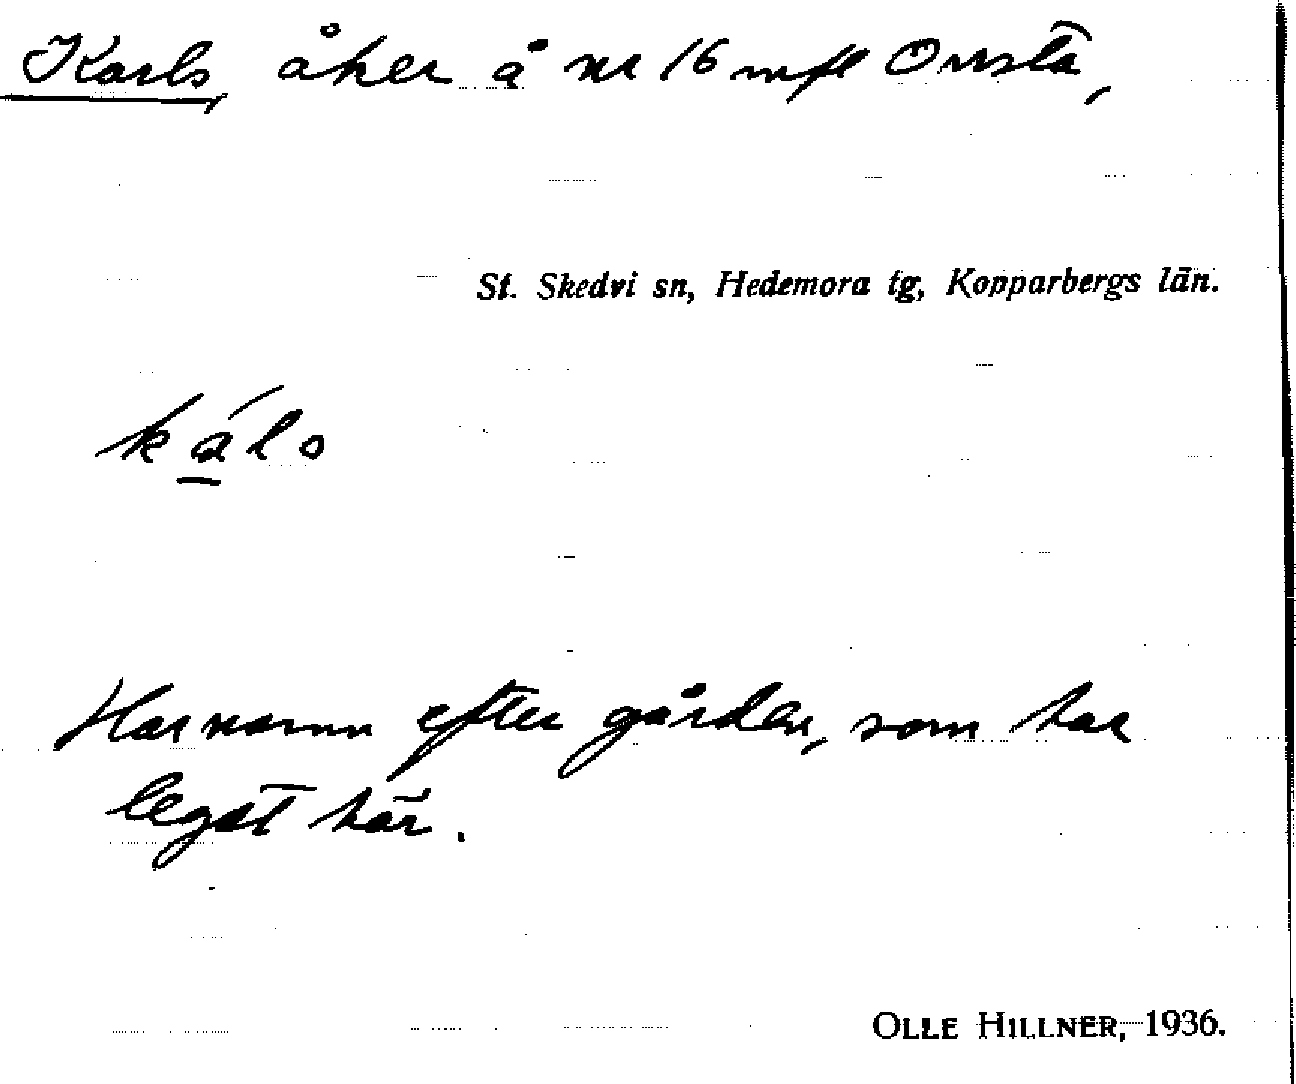 Karls, åker å nr 16 mfl Onsta,
St. Skedvi sn, Hedemora tg, Kopparbergs län.
káls
Har namn efter gården, som har
legat här.
OLLE HILLNER, 1936.